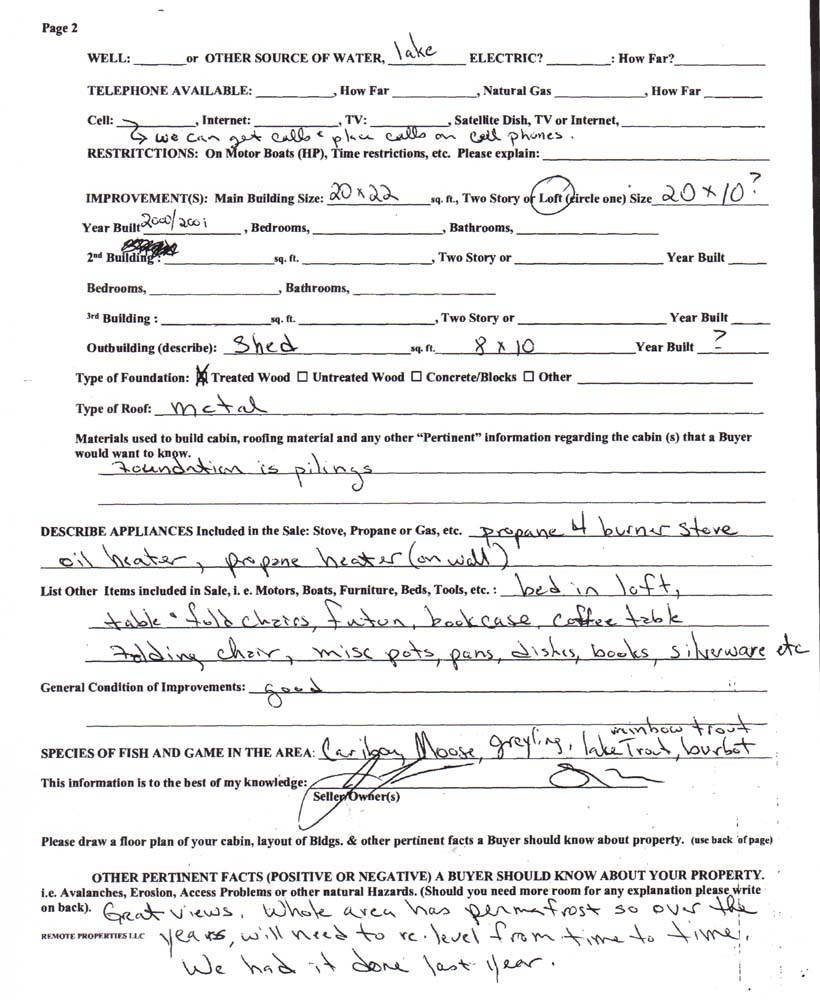 Page 2
WELL: ______ or OTHER SOURCE OF WATER, lake ELECTRIC? ______: How Far? ______
TELEPHONE AVAILABLE: ______, How Far ______, Natural Gas ______, How Far ______
Cell: ______, Internet: ______, TV: ______, Satellite Dish, TV or Internet, ______
↳ we can get calls & place calls on cell phones.
RESTRITCTIONS: On Motor Boats (HP), Time restrictions, etc. Please explain: ______
IMPROVEMENT(S): Main Building Size: 20 x 22 sq. ft., Two Story or Loft (circle one) Size 20 x 10?
Year Built 2000/2001, Bedrooms, ______, Bathrooms, ______
2nd Building: ______ sq. ft. ______, Two Story or ______ Year Built ____
Bedrooms, ______, Bathrooms, ______
3rd Building : ______ sq. ft. ______, Two Story or ______ Year Built ____
Outbuilding (describe): Shed sq. ft. 8 x 10 Year Built ?
Type of Foundation: ☒ Treated Wood ☐ Untreated Wood ☐ Concrete/Blocks ☐ Other ______
Type of Roof: metal
Materials used to build cabin, roofing material and any other “Pertinent” information regarding the cabin (s) that a Buyer
would want to know.
Foundation is pilings
DESCRIBE APPLIANCES Included in the Sale: Stove, Propane or Gas, etc. propane 4 burner stove
oil heater, propane heater (on wall)
List Other Items included in Sale, i. e. Motors, Boats, Furniture, Beds, Tools, etc. : bed in loft,
table & fold chairs, futon, bookcase, coffee table
folding chair, misc pots, pans, dishes, books, silverware etc
General Condition of Improvements: good
rainbow trout
SPECIES OF FISH AND GAME IN THE AREA: Caribou, Moose, greyling, lake Trout, burbot
This information is to the best of my knowledge:
Seller/Owner(s)
Please draw a floor plan of your cabin, layout of Bldgs. & other pertinent facts a Buyer should know about property. (use back of page)
OTHER PERTINENT FACTS (POSITIVE OR NEGATIVE) A BUYER SHOULD KNOW ABOUT YOUR PROPERTY.
i.e. Avalanches, Erosion, Access Problems or other natural Hazards. (Should you need more room for any explanation please write
on back). Great views. Whole area has permafrost so over the
REMOTE PROPERTIES LLC years, will need to re-level from time to time.
We had it done last year.